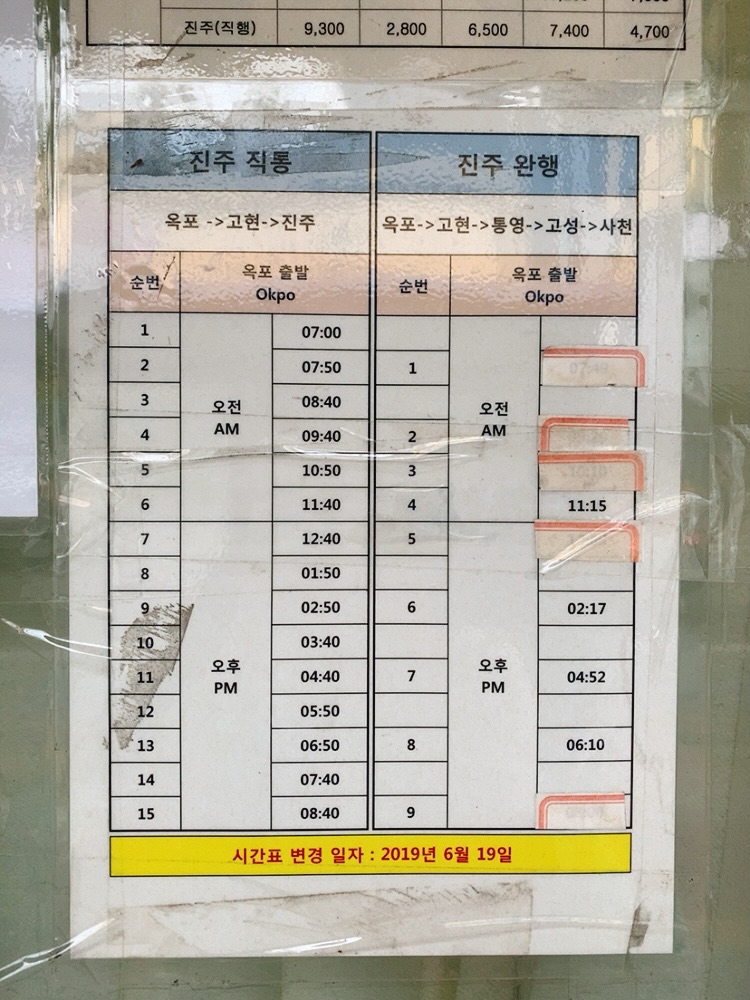 진주(직행) 9,300 2,800 6,500 7,400 4,700
진주 직통 진주 완행
옥포 ->고현->진주 옥포->고현->통영->고성->사천
순번 옥포 출발 Okpo 순번 옥포 출발 Okpo
오전 AM 오전 AM
1 07:00
2 07:50 1
3 08:40
4 09:40 2
5 10:50 3
6 11:40 4 11:15
오후 PM 오후 PM
7 12:40 5
8 01:50
9 02:50 6 02:17
10 03:40
11 04:40 7 04:52
12 05:50
13 06:50 8 06:10
14 07:40
15 08:40 9
시간표 변경 일자 : 2019년 6월 19일